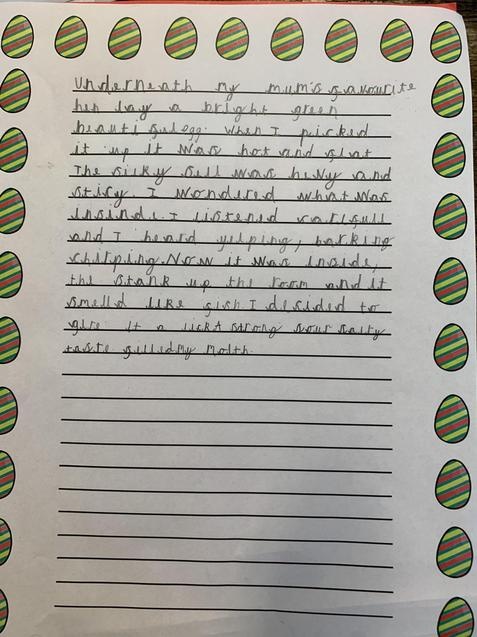 Underneath my mum's favourite
hen lay a bright green
beauti ful egg. When I picked
it up it was hot and flat
The silky sell was hevy and
sticy. I wondered what was
insinde. I listened carifull
and I heard yelping, barking
chirping. Now it was inside,
the stank up the room and it
smelld like fish I desided to
give it a lickt strong sour salty
taste filled my moith.